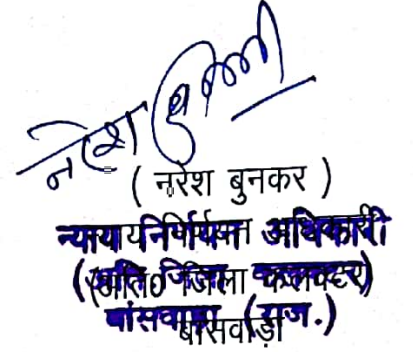 नरेश
( नरेश बुनकर )
न्याय निर्णयन अधिकारी
(अति0 जिला कलक्टर)
बांसवाड़ा (राज.)